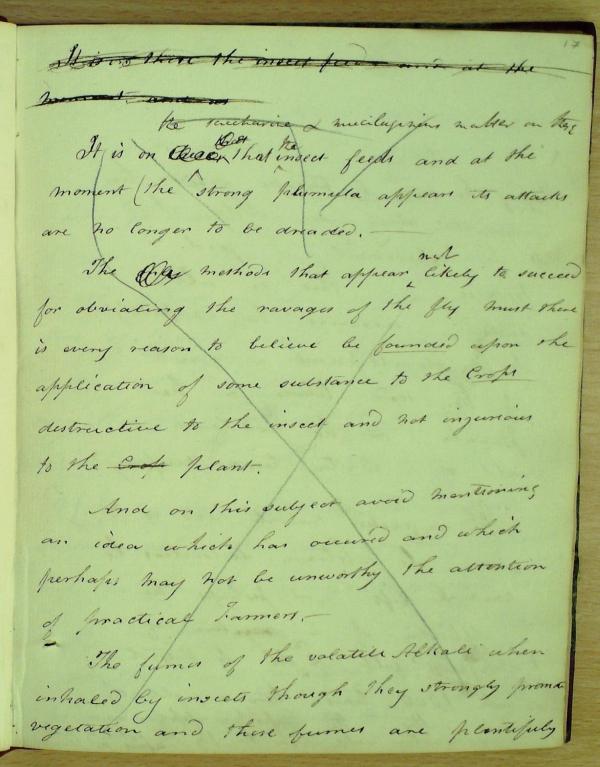 17
It is on these the insect feeds and at the
moment and as
the saccharine & mucilaginous matter on they
It is on that the insect feeds and at the
moment (the strong plumula appears its attacks
are no longer to be dreaded. —
The methods that appear not likely to succeed
for obviating the ravages of the fly must there
is every reason to believe be founded upon the
application of some substance to the Crops
destructive to the insect and not injurious
to the Crop plant.
And on this subject avoid mentioning
an idea which has occured and which
perhaps may not be unworthy the attention
of practical Farmers. —
The fumes of the volatile Alkali when
inhaled by insects though they strongly promote
vegetation and those fumes are plentifuly